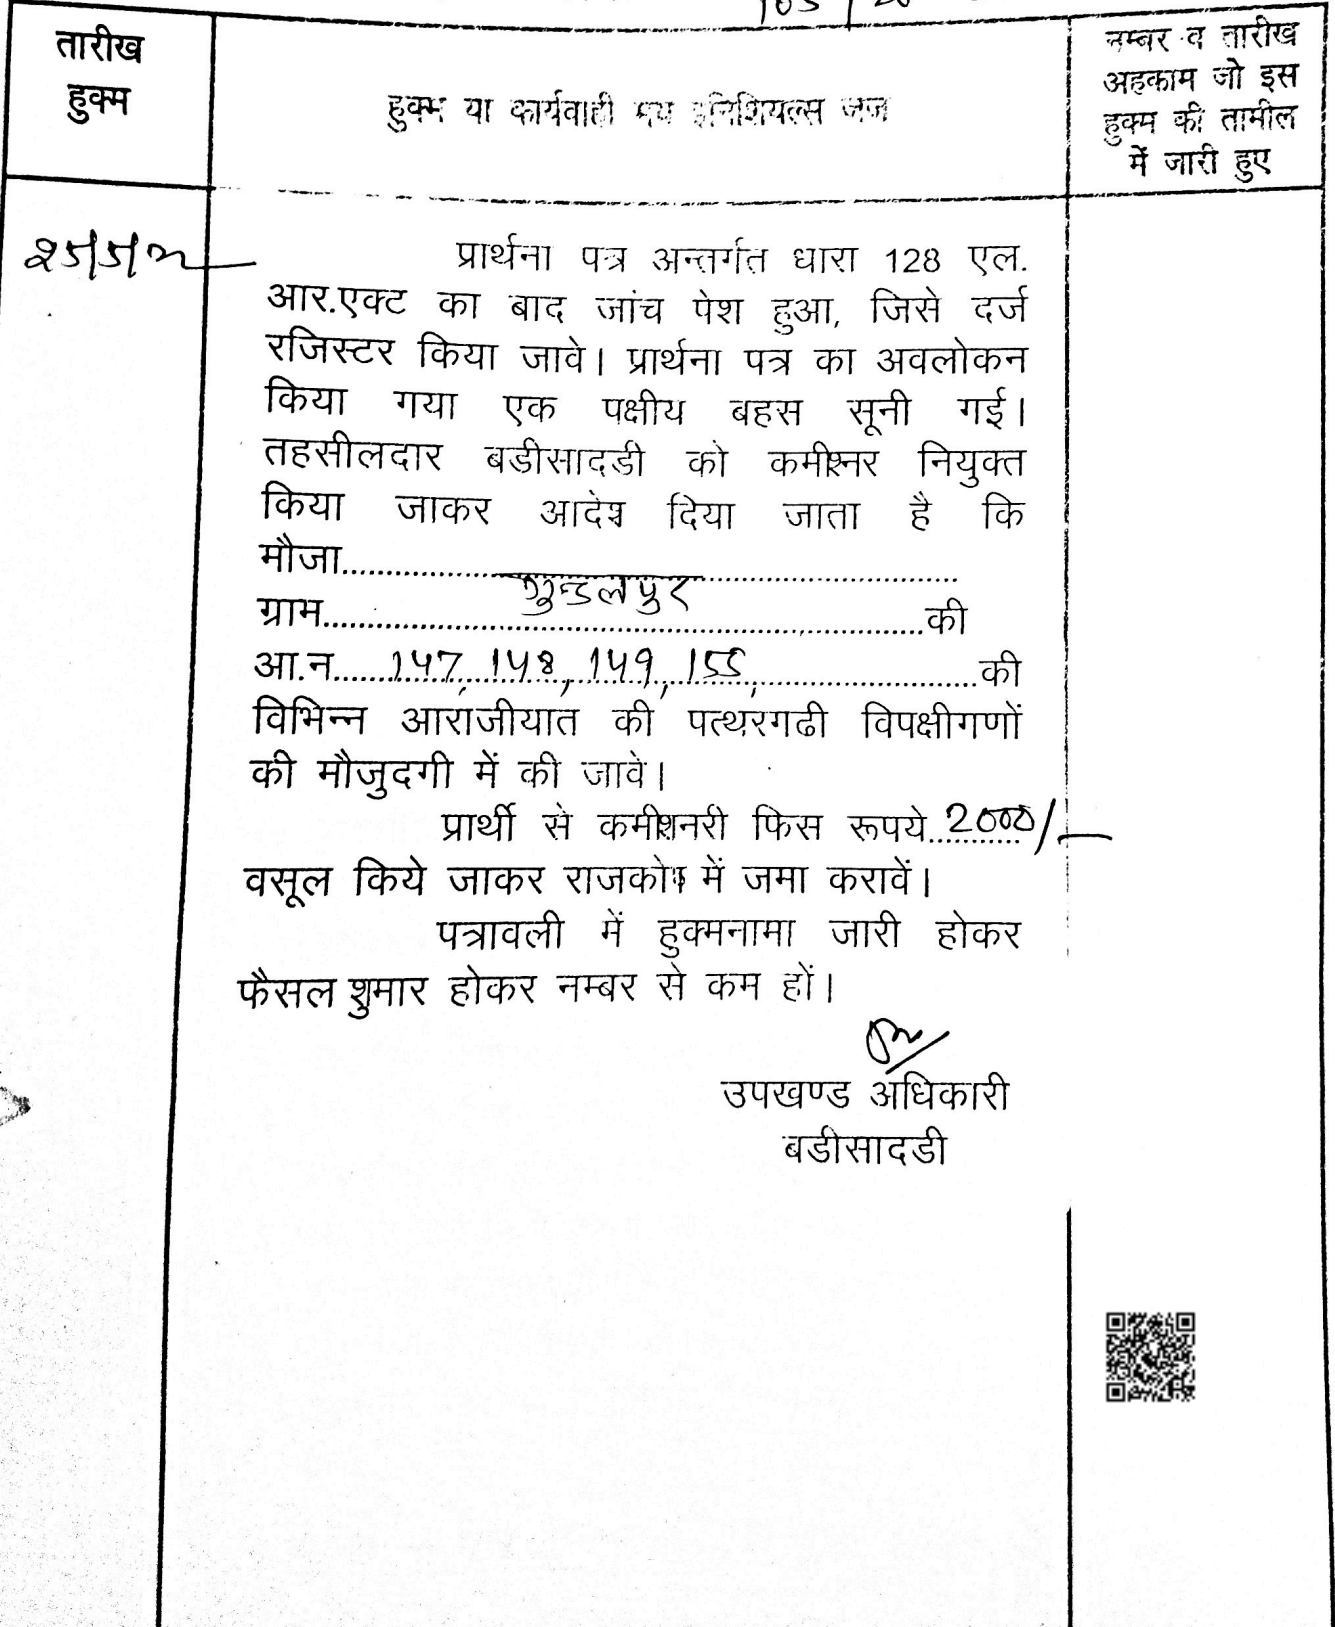 तारीख
हुक्म
हुक्म या कार्यवाही मय इनिशियल्स जज
नम्बर व तारीख
अहकाम जो इस
हुक्म की तामील
में जारी हुए
प्रार्थना पत्र अन्तर्गत धारा 128 एल.
आर.एक्ट का बाद जांच पेश हुआ, जिसे दर्ज
रजिस्टर किया जावे। प्रार्थना पत्र का अवलोकन
किया गया एक पक्षीय बहस सूनी गई।
तहसीलदार बडीसादडी को कमीश्नर नियुक्त
किया जाकर आदेश दिया जाता है कि
मौजा..........
ग्राम..........की
आ.न.....147, 148, 149, 155,..........की
विभिन्न आराजीयात की पत्थरगढी विपक्षीगणों
की मौजुदगी में की जावे।
प्रार्थी से कमीशनरी फिस रूपये..2000/-
वसूल किये जाकर राजकोष में जमा करावें।
पत्रावली में हुक्मनामा जारी होकर
फैसल शुमार होकर नम्बर से कम हों।
उपखण्ड अधिकारी
बडीसादडी